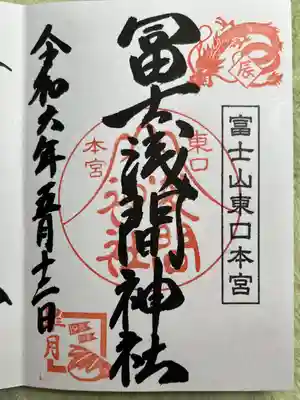 辰
富士山東口本宮
冨士浅間神社
東口
本宮
令和六年五月十二日